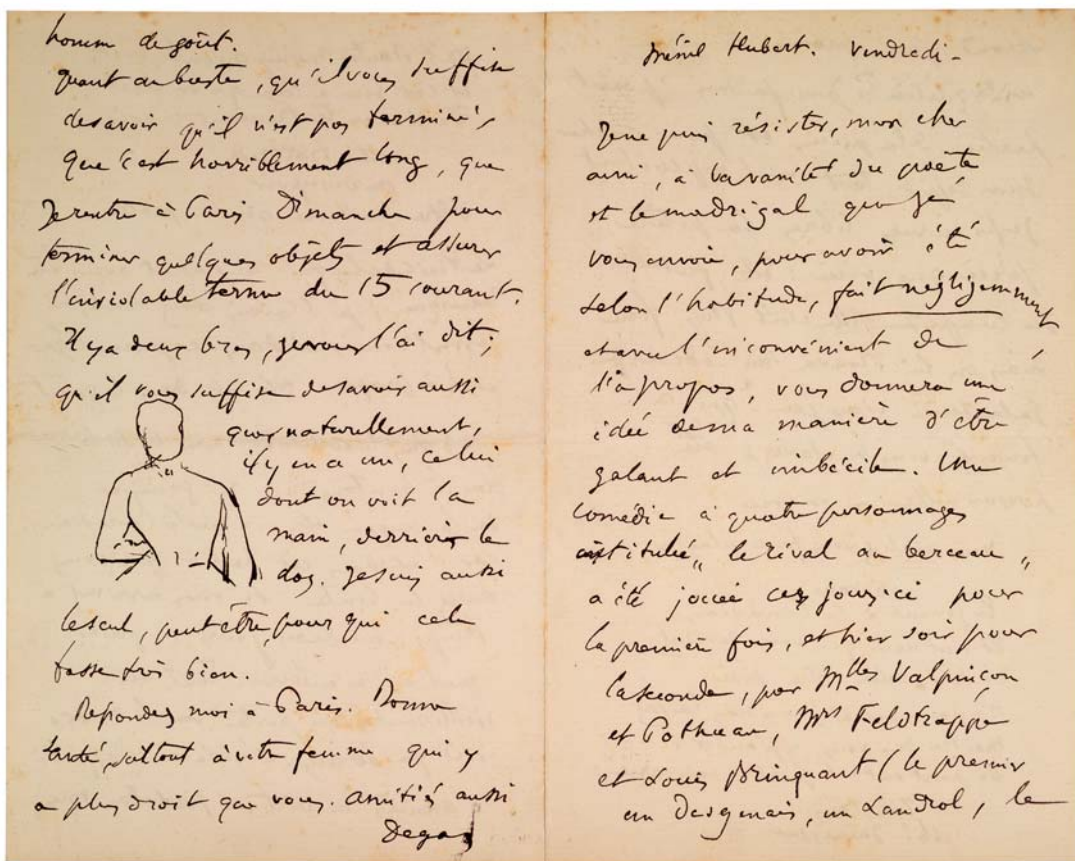 homme de goût.
Quant au buste, qu'il vous suffise
de savoir qu'il n'est pas terminé,
que c'est horriblement long, que
je rentre à Paris Dimanche pour
terminer quelques objets et assurer
l'inviolable terme du 15 courant.
Il y a deux bras, je vous l'ai dit;
qu'il vous suffise de savoir aussi
que, naturellement,
il y en a un, celui
dont on voit la
main, derrière le
dos. Je suis aussi
le seul, peut être, pour qui cela
fasse très bien.
Répondez moi à Paris. Bonne
santé, surtout à votre femme qui y
a plus droit que vous. amitiés aussi
Degas
Ménil Hubert. Vendredi -
Je ne puis résister, mon cher
ami, à la vanité du poète
et le madrigal que je
vous envoie, pour avoir été
selon l'habitude, fait négligemment,
et avec l'inconvénient de
l'à propos, vous donnera une
idée de ma manière d'être
galant et imbécile. Une
comédie à quatre personnages
intitulée „ le rival au berceau „
a été jouée ces jours ci pour
la première fois, et hier soir pour
la seconde, par Mlles Valpinçon
et Pothuau, Mrs Feldtrappe
et Louis Brinquant (le premier
un Desgenais, un Landrol, le